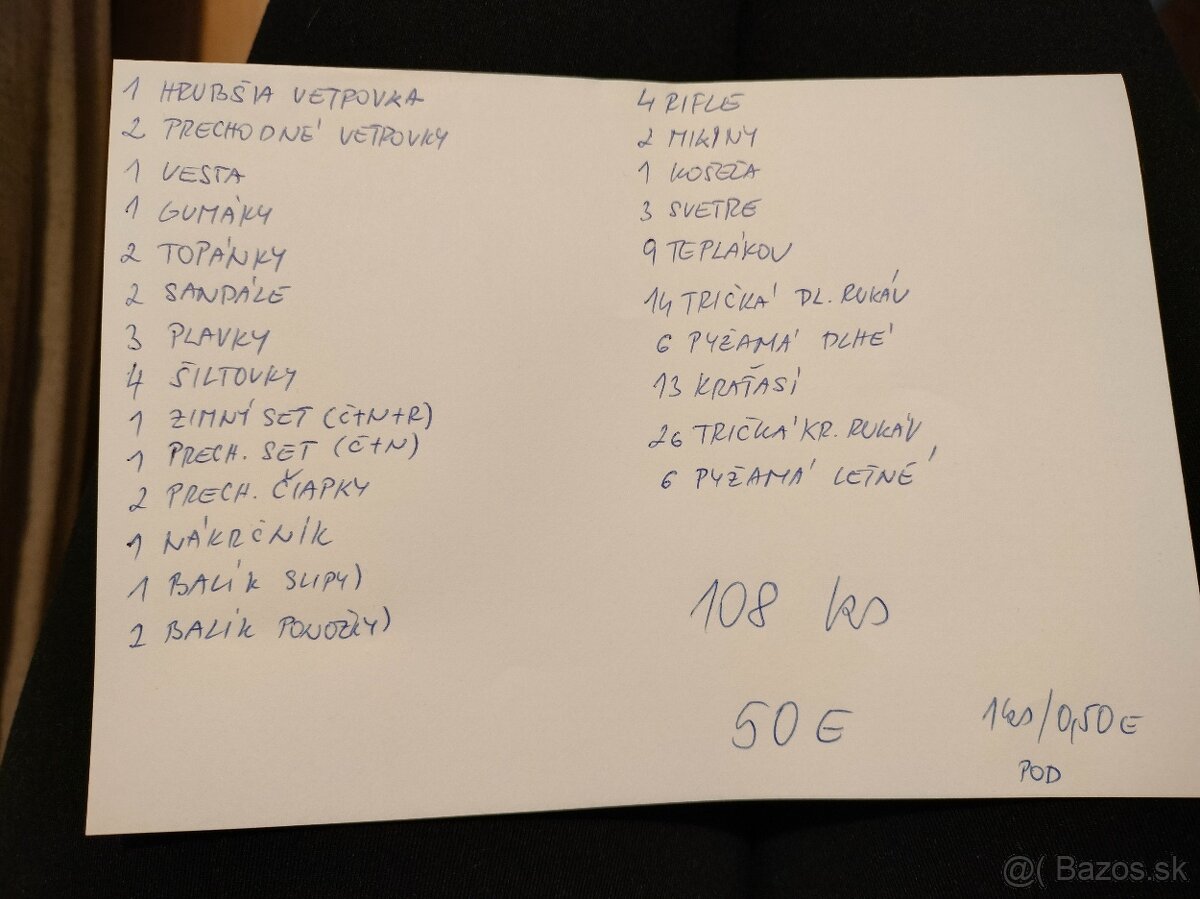 1 HRUBŠIA VETROVKA
2 PRECHODNÉ VETROVKY
1 VESTA
1 GUMÁKY
2 TOPÁNKY
2 SANDÁLE
3 PLAVKY
4 ŠILTOVKY
1 ZIMNÝ SET (Č+N+R)
1 PRECH. SET (Č+N)
2 PRECH. ČIAPKY
1 NÁKRČNÍK
1 BALÍK SLIPY)
2 BALÍK PONOŽKY)
4 RIFLE
2 MIKINY
1 KOŠEĽA
3 SVETRE
9 TEPLÁKOV
14 TRIČKÁ DL. RUKÁV
6 PYŽAMÁ DLHÉ
13 KRAŤASÍ
26 TRIČKÁ KR. RUKÁV
6 PYŽAMÁ LETNÉ
108 ks
50 €
1ks/0,50€
POD
@( Bazos.sk